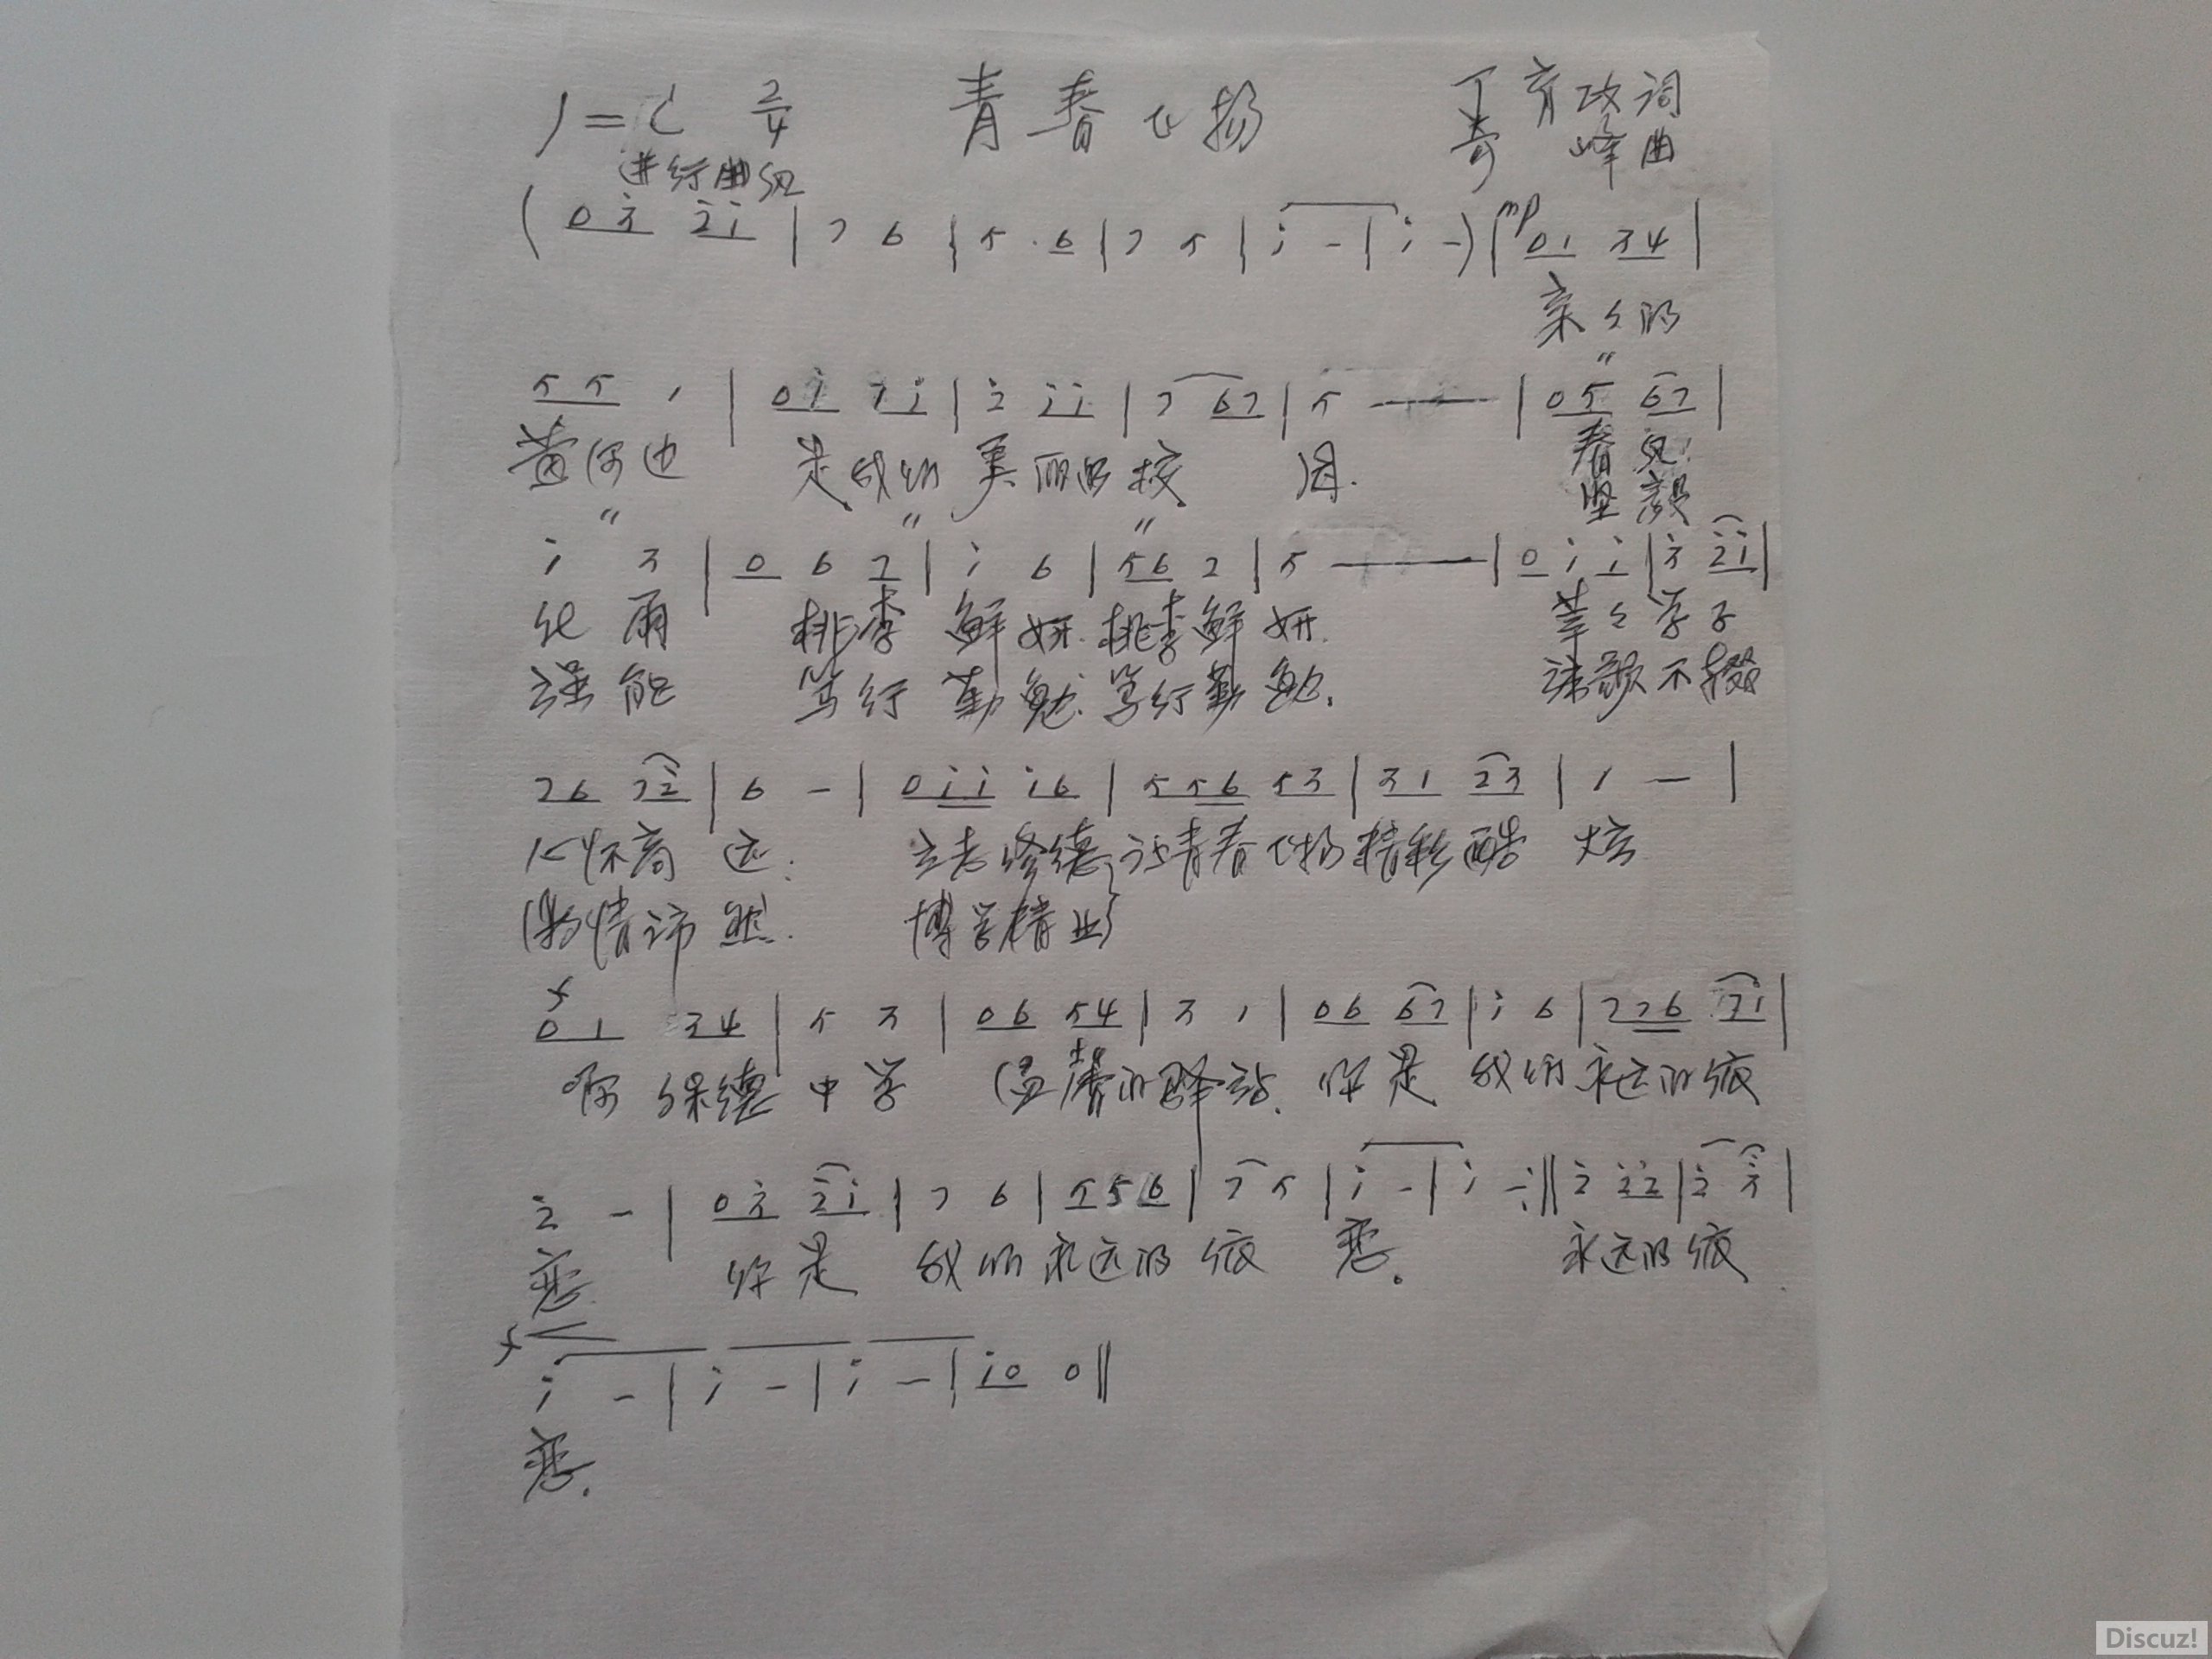 1=C 2/4 青春飞扬 丁育政词
进行曲风 奇峰曲
(0 3̇ 2̇ 1̇ | 7 6 | 5 · 6 | 7 5 | 1̇ - | 1̇ -) | mp 0 1 3 4 |
亲々的
5 5 1 | 0 1̇ 7 1̇ | 2̇ 1̇ 1̇ | 7 6 7 | 5 — | 0 5 6 7 |
黄河边 是我们 美丽的校 园. 春风
〃 〃 〃 〃 坚毅
1̇ 3 | 0 6 7 | 1̇ 6 | 5 6 2 | 5 — | 0 1̇ 1̇ | 3̇ 2̇ 1̇ |
化雨 桃李 鲜妍. 桃李鲜妍. 莘々学子
强能 笃行 勤勉. 笃行勤勉. 弦歌不辍
7 6 7 2̇ | 6 - | 0 1̇ 1̇ 1̇ 6 | 5 5 6 5 3 | 3 1 2 3 | 1 — |
心怀高远. 立志修德 让青春飞扬精彩酷炫
激情沛然. 博学精业}
f
0 1 3 4 | 5 3 | 0 6 5 4 | 3 1 | 0 6 6 7 | 1̇ 6 | 7 7 6 7 1̇ |
啊 保德中学 温馨的驿站. 你是 我们永远的依
2̇ - | 0 3̇ 2̇ 1̇ | 7 6 | 5 5 6 | 7 5 | 1̇ - | 1̇ - :‖ 2̇ 2̇ 2̇ | 2̇ 3̇ |
恋 你是 我们永远的依 恋. 永远的依
f <
1̇ - | 1̇ - | 1̇ - | 1̇ 0 0 ‖
恋.
Discuz!